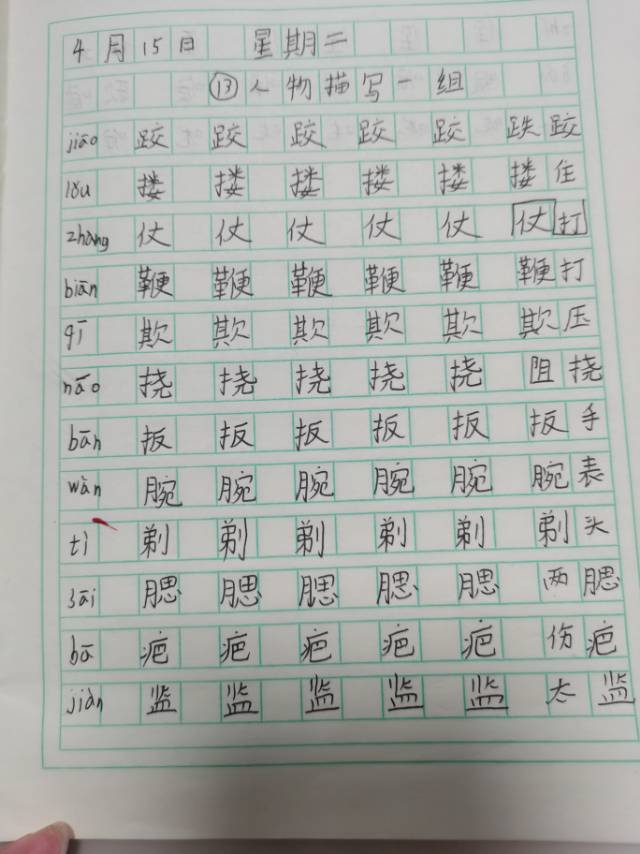 4月15日 星期二
⑬人物描写一组
jiāo 跤 跤 跤 跤 跤 跌跤
lǒu 搂 搂 搂 搂 搂 搂住
zhàng 仗 仗 仗 仗 仗 仗打
biān 鞭 鞭 鞭 鞭 鞭 鞭打
qī 欺 欺 欺 欺 欺 欺压
náo 挠 挠 挠 挠 挠 阻挠
bān 扳 扳 扳 扳 扳 扳手
wàn 腕 腕 腕 腕 腕 腕表
tì 剃 剃 剃 剃 剃 剃头
sāi 腮 腮 腮 腮 腮 两腮
bā 疤 疤 疤 疤 疤 伤疤
jiàn 监 监 监 监 监 太监